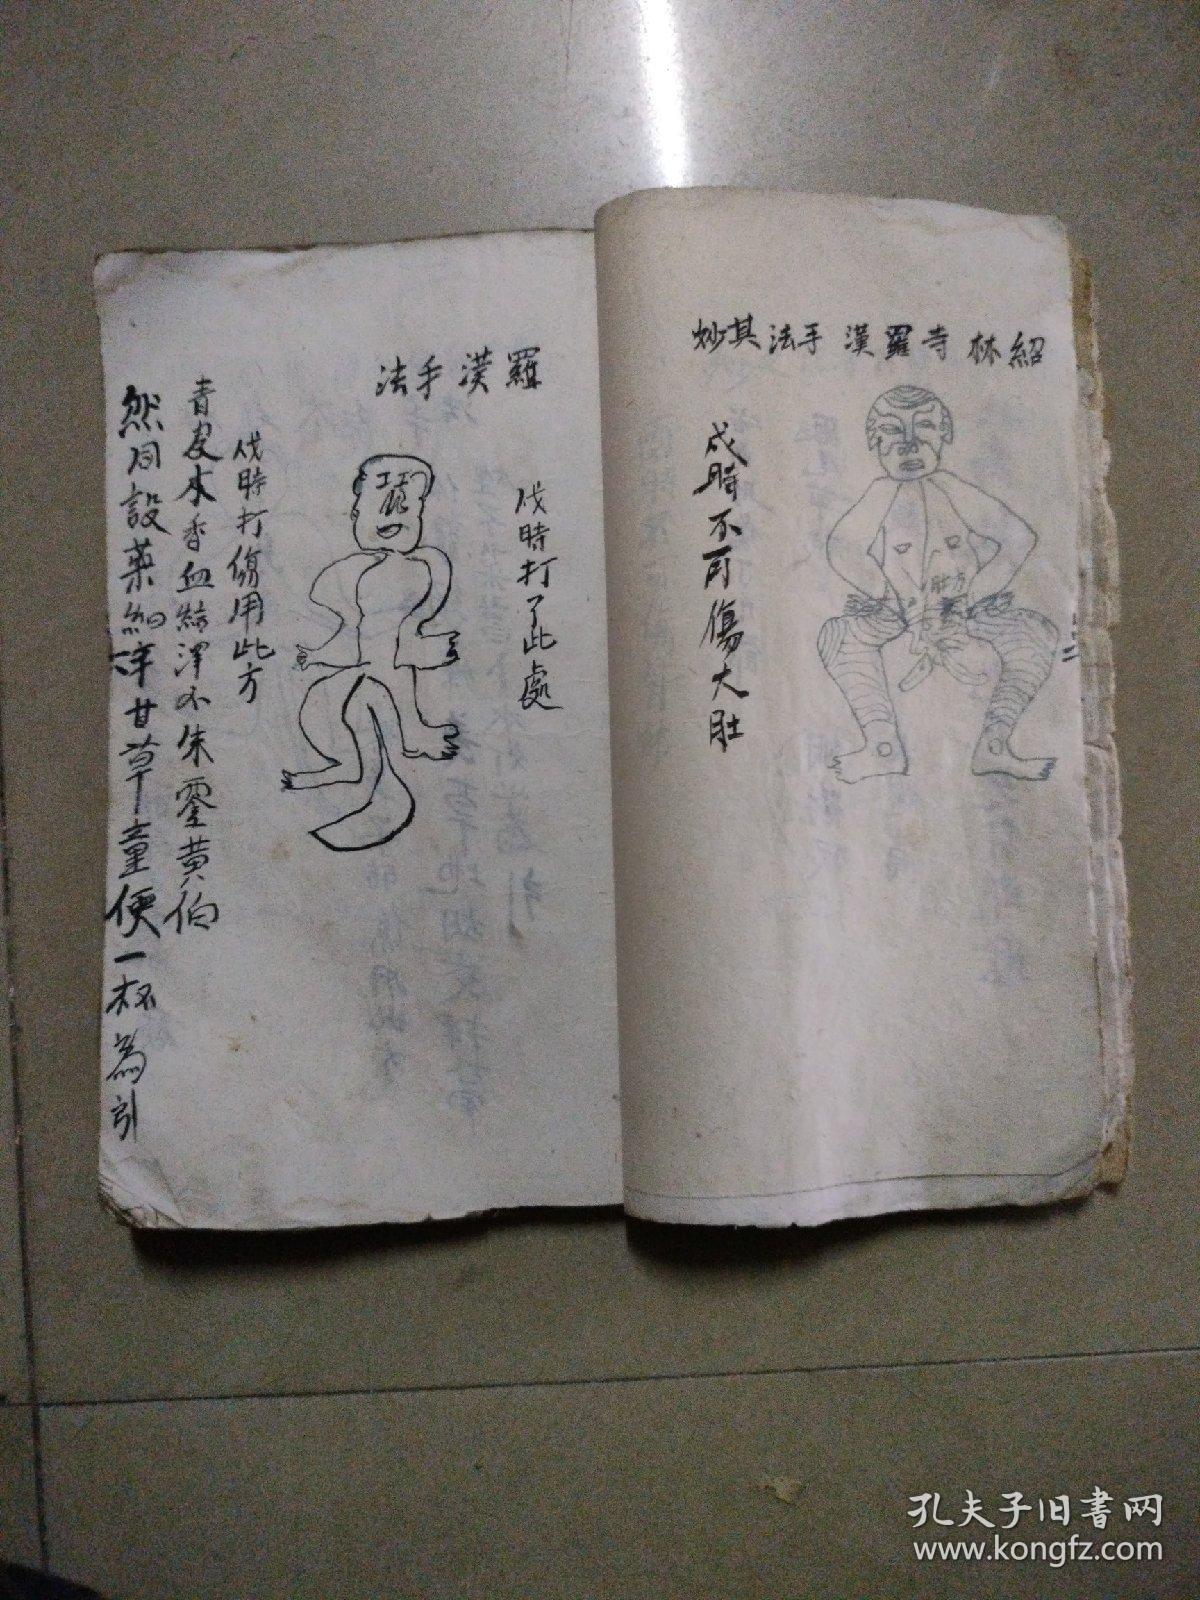 紹林寺羅漢手法其妙
戍時不可傷大肚
肚方
羅漢手法
伐時打了此處
伐時打傷用此方
青皮木香血結澤小朱零黃伯
然同設藥細辛甘草童便一杯為引
孔夫子旧书网
www.kongfz.com